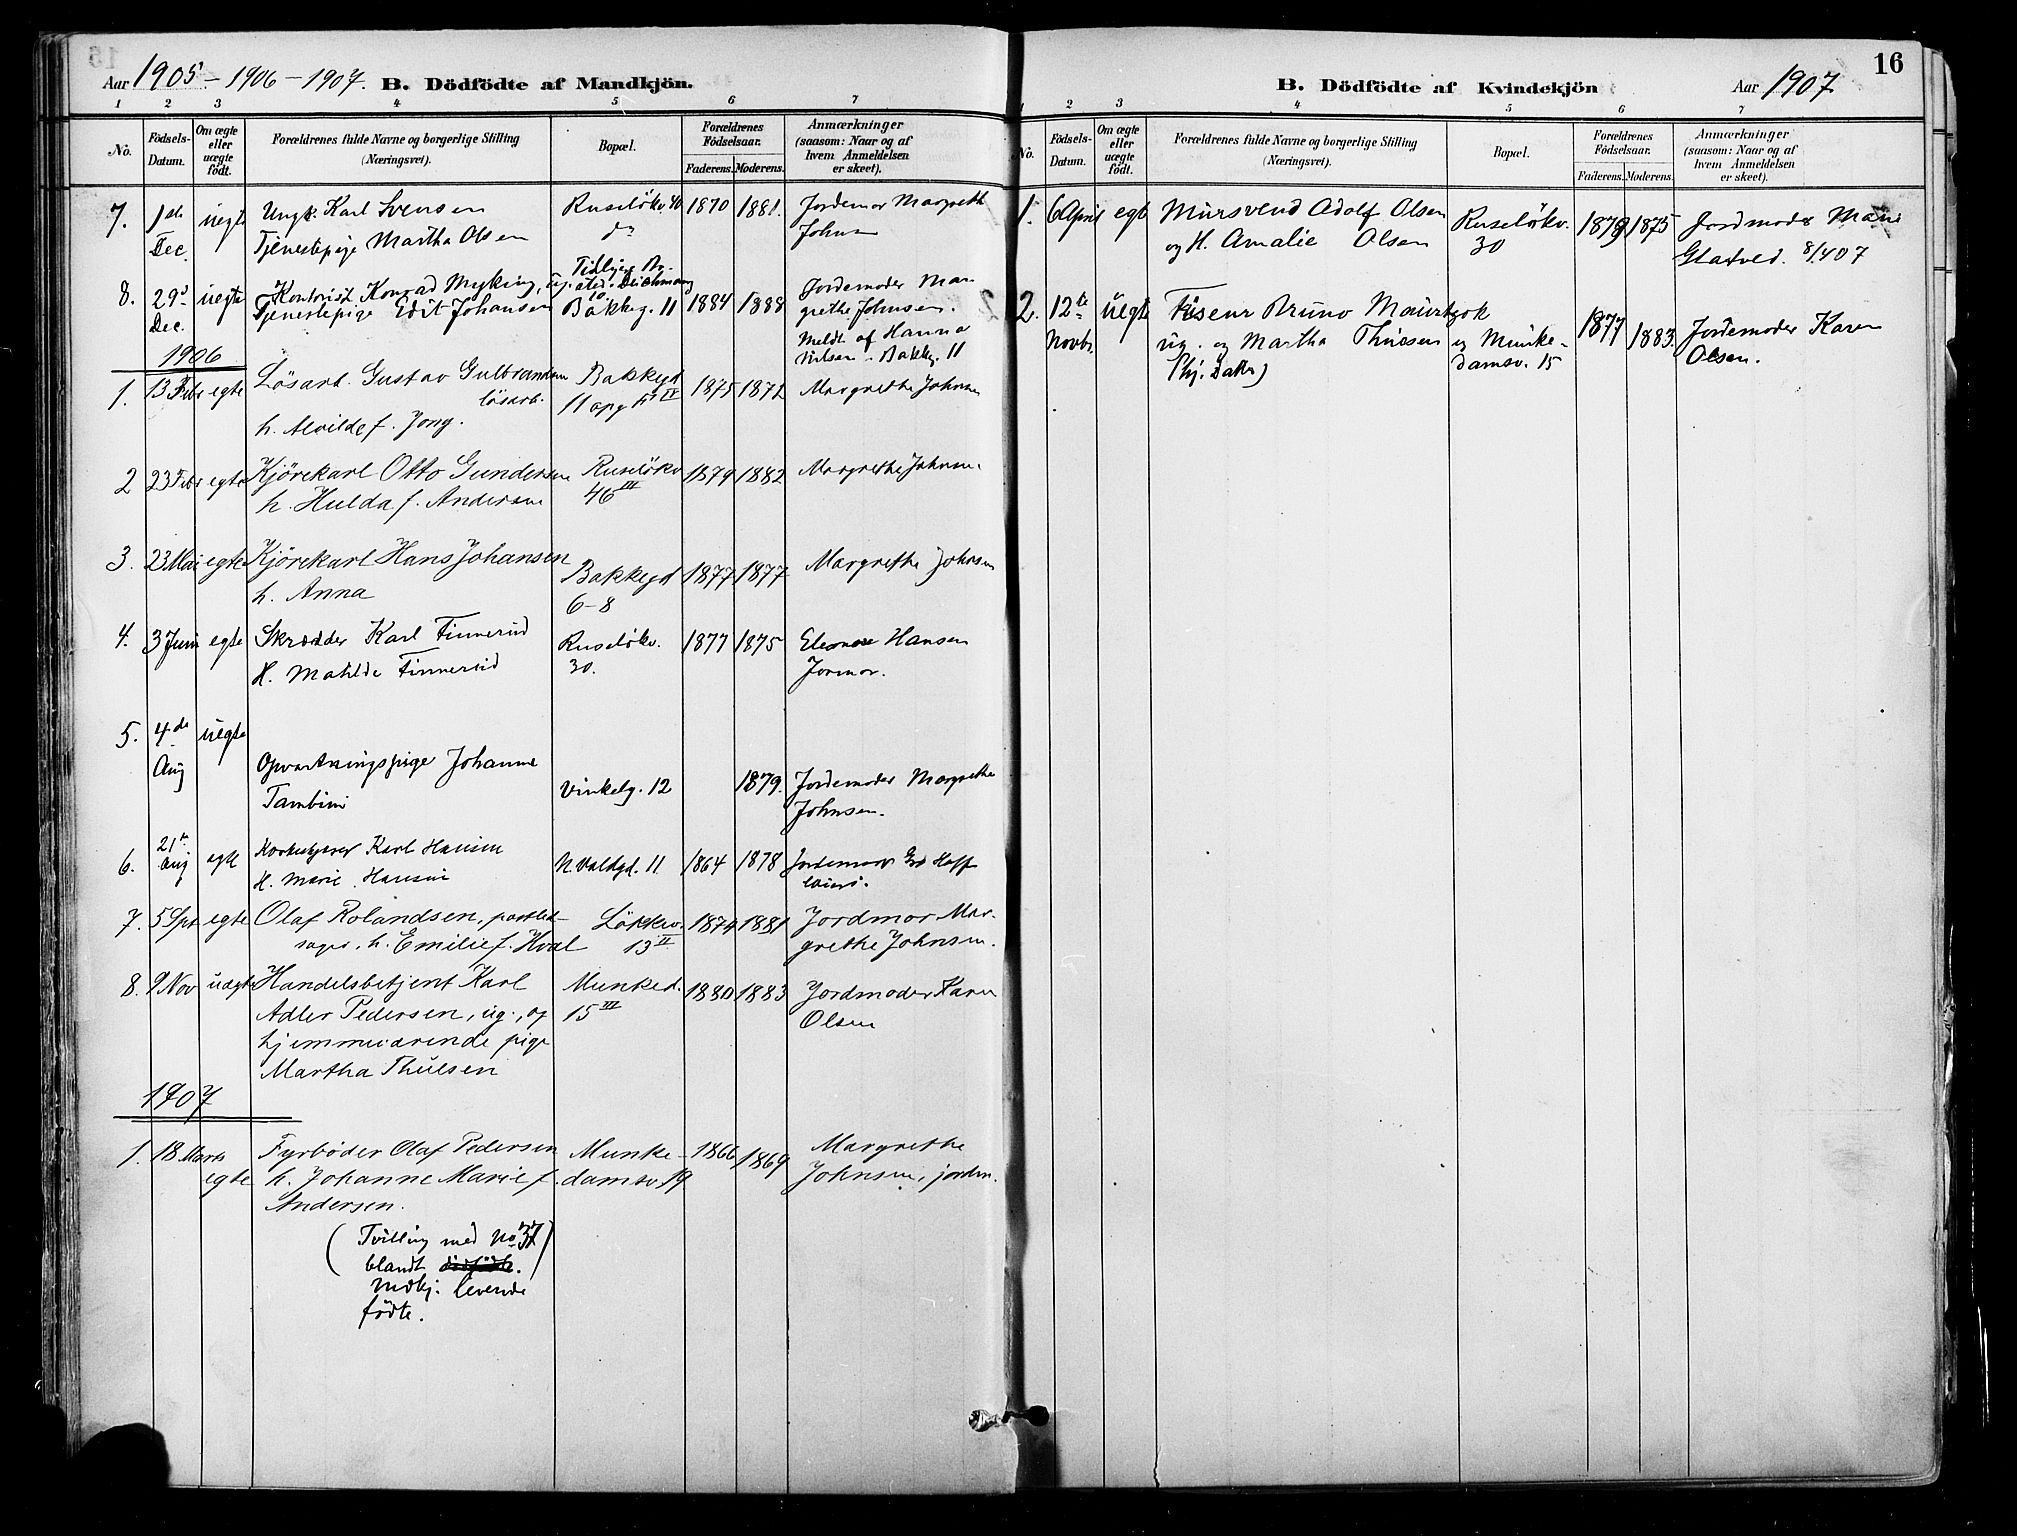 Aar 1905 - 1906 - 1907. B. Dödfödte af Mandkjön.
1 2 3 4 5 6 7
No.
Födsels-Datum.
Om ægte eller uægte födt.
Forældrenes fulde Navne og borgerlige Stilling (Næringsvei).
Bopæl.
Forældrenes Födselsaar.
Faderens. Moderens.
Anmærkninger (saasom: Naar og af hvem Anmeldelsen er skeet).
7. 1ste uegte Ungk. Karl Svensen Ruseløkv. 40 1870 1881. Jordemor Margreth
Dec. Tjenestepige Martha Olsen do Johns
8. 29de uegte Kontorist Konrad Myking, ug. 1884 1888 Jordemoder Mar
Dec. Tjenestepige Edit Johansen Bakkeg. 11 grethe Johnsen.
Meldt af Hanna
Nilsen. Bakkg. 11
1906
1. 13 Febr egte Løsarb. Gustav Gulbrandsen Bakkegd 1875 1872 Margrethe Johnsen
løsarb. 11 opg IV
h. Alvilde f. Jong.
2 23 Febr egte Kjørekarl Otto Gundersen Ruseløkv 1879 1882 Margrethe Johnsen
h. Hulda f. Andersen 46 III
3. 23 Mai egte Kjørekarl Hans Johansen Bakkegd 1877 1877 Margrethe Johnsen
h. Anna 6-8
4. 3 Juni egte Skrædder Karl Finnerud Ruseløkv. 1877 1875 Eleonore Hansen
H. Matilde Finnerud 30. Jormor.
5. 4de uegte
Aug Opvartningspige Johanne Vinkelg. 12 1879. Jordemoder Margrethe
Tambini Johnsen.
6. 21te Aug egte Karl Hansen N. Valdgd. 11 1864 1878 Jordemor
H. Marie Hansen
7. 5 Spt egte Olaf Rolandsen, postled- Løkkev. 1874 1881 Jordmor Mar-
sager, h. Emilie f. Hval 13 II grethe Johnsen.
8. 9 Nov uægte Handelsbetjent Karl Munked. 1880 1883 Jordmoder Karen
Adler Pedersen, ug., og 15 III Olsen
hjemmeværende pige
Martha Thuesen
1907
1. 18 Marts Fyrbøder Olaf Pedersen Munke- 1866 1869 Margrethe
egte h. Johanne Marie f. damsv 19 Johnsen, jordm.
Andersen.
(Tvilling med No 37
blandt dødfødte.)
Mdkj. levende
fødte.
16
B. Dödfödte af Kvindekjön Aar 1907
1 2 3 4 5 6 7
No.
Födsels-Datum.
Om ægte eller uægte födt.
Forældrenes fulde Navne og borgerlige Stilling (Næringsvei).
Bopæl.
Forældrenes Födselsaar.
Faderens. Moderens.
Anmærkninger (saasom: Naar og af hvem Anmeldelsen er skeet).
1. 6 April egt Mursvend Adolf Olsen Ruseløkv. 1879 1875 Jordmoder Marie
og H. Amalie Olsen 30 Glatved. 8/4 07
2. 12te uegte Bruno 1877 1883. Jordemoder Karen
Novbr. ug. og Martha Thuesen Munke- Olsen.
damsv. 15